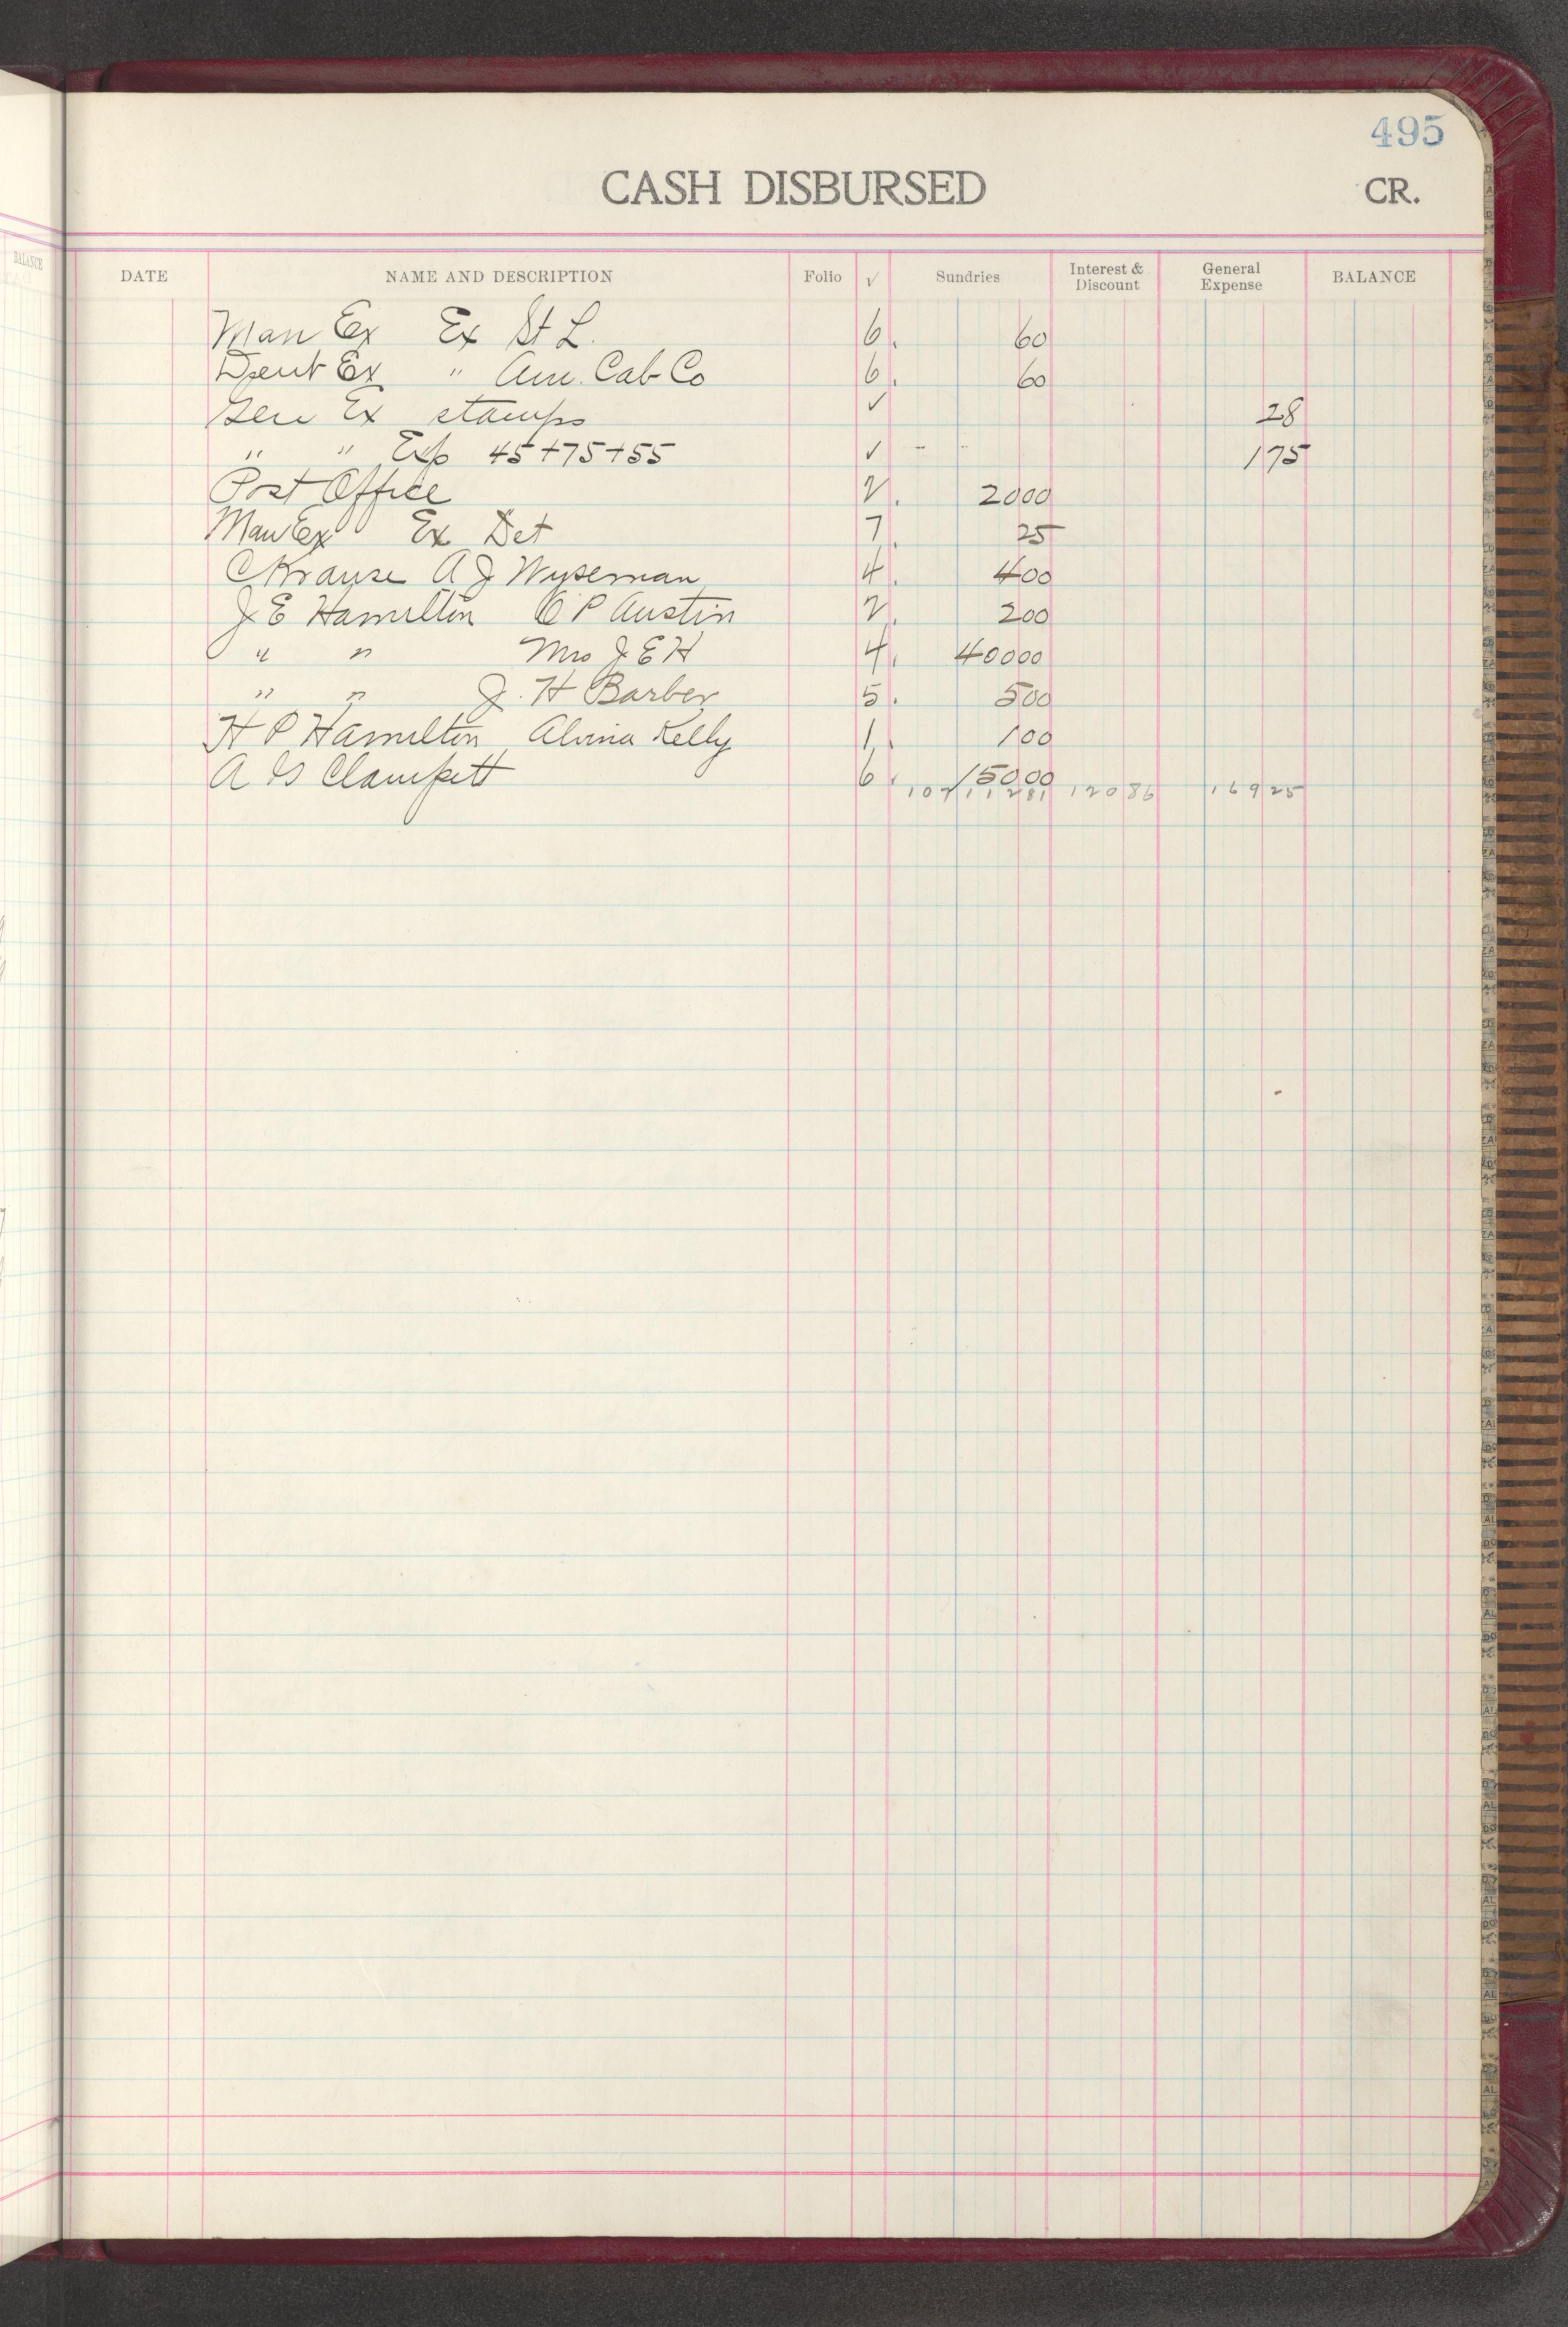 495
CASH DISBURSED CR.
BALANCE
DATE NAME AND DESCRIPTION Folio √ Sundries Interest & Discount General Expense BALANCE
Man Ex Ex St L. 6. 60
Dent Ex " Am. Cab Co 6. 60
Gen Ex stamps ✓ 28
" " Exp 45+75+55 ✓ 175
Post Office 2. 2000
Man Ex Ex Det 7. 25
C Krause A J Wyseman 4. 400
J E Hamilton O P Austin 2. 200
" " Mrs J E H 4. 40000
" " J. H Barber 5. 500
H P Hamilton Alvina Kelly 1. 100
A G Clampett 6. 15000
10211281 12086 16925